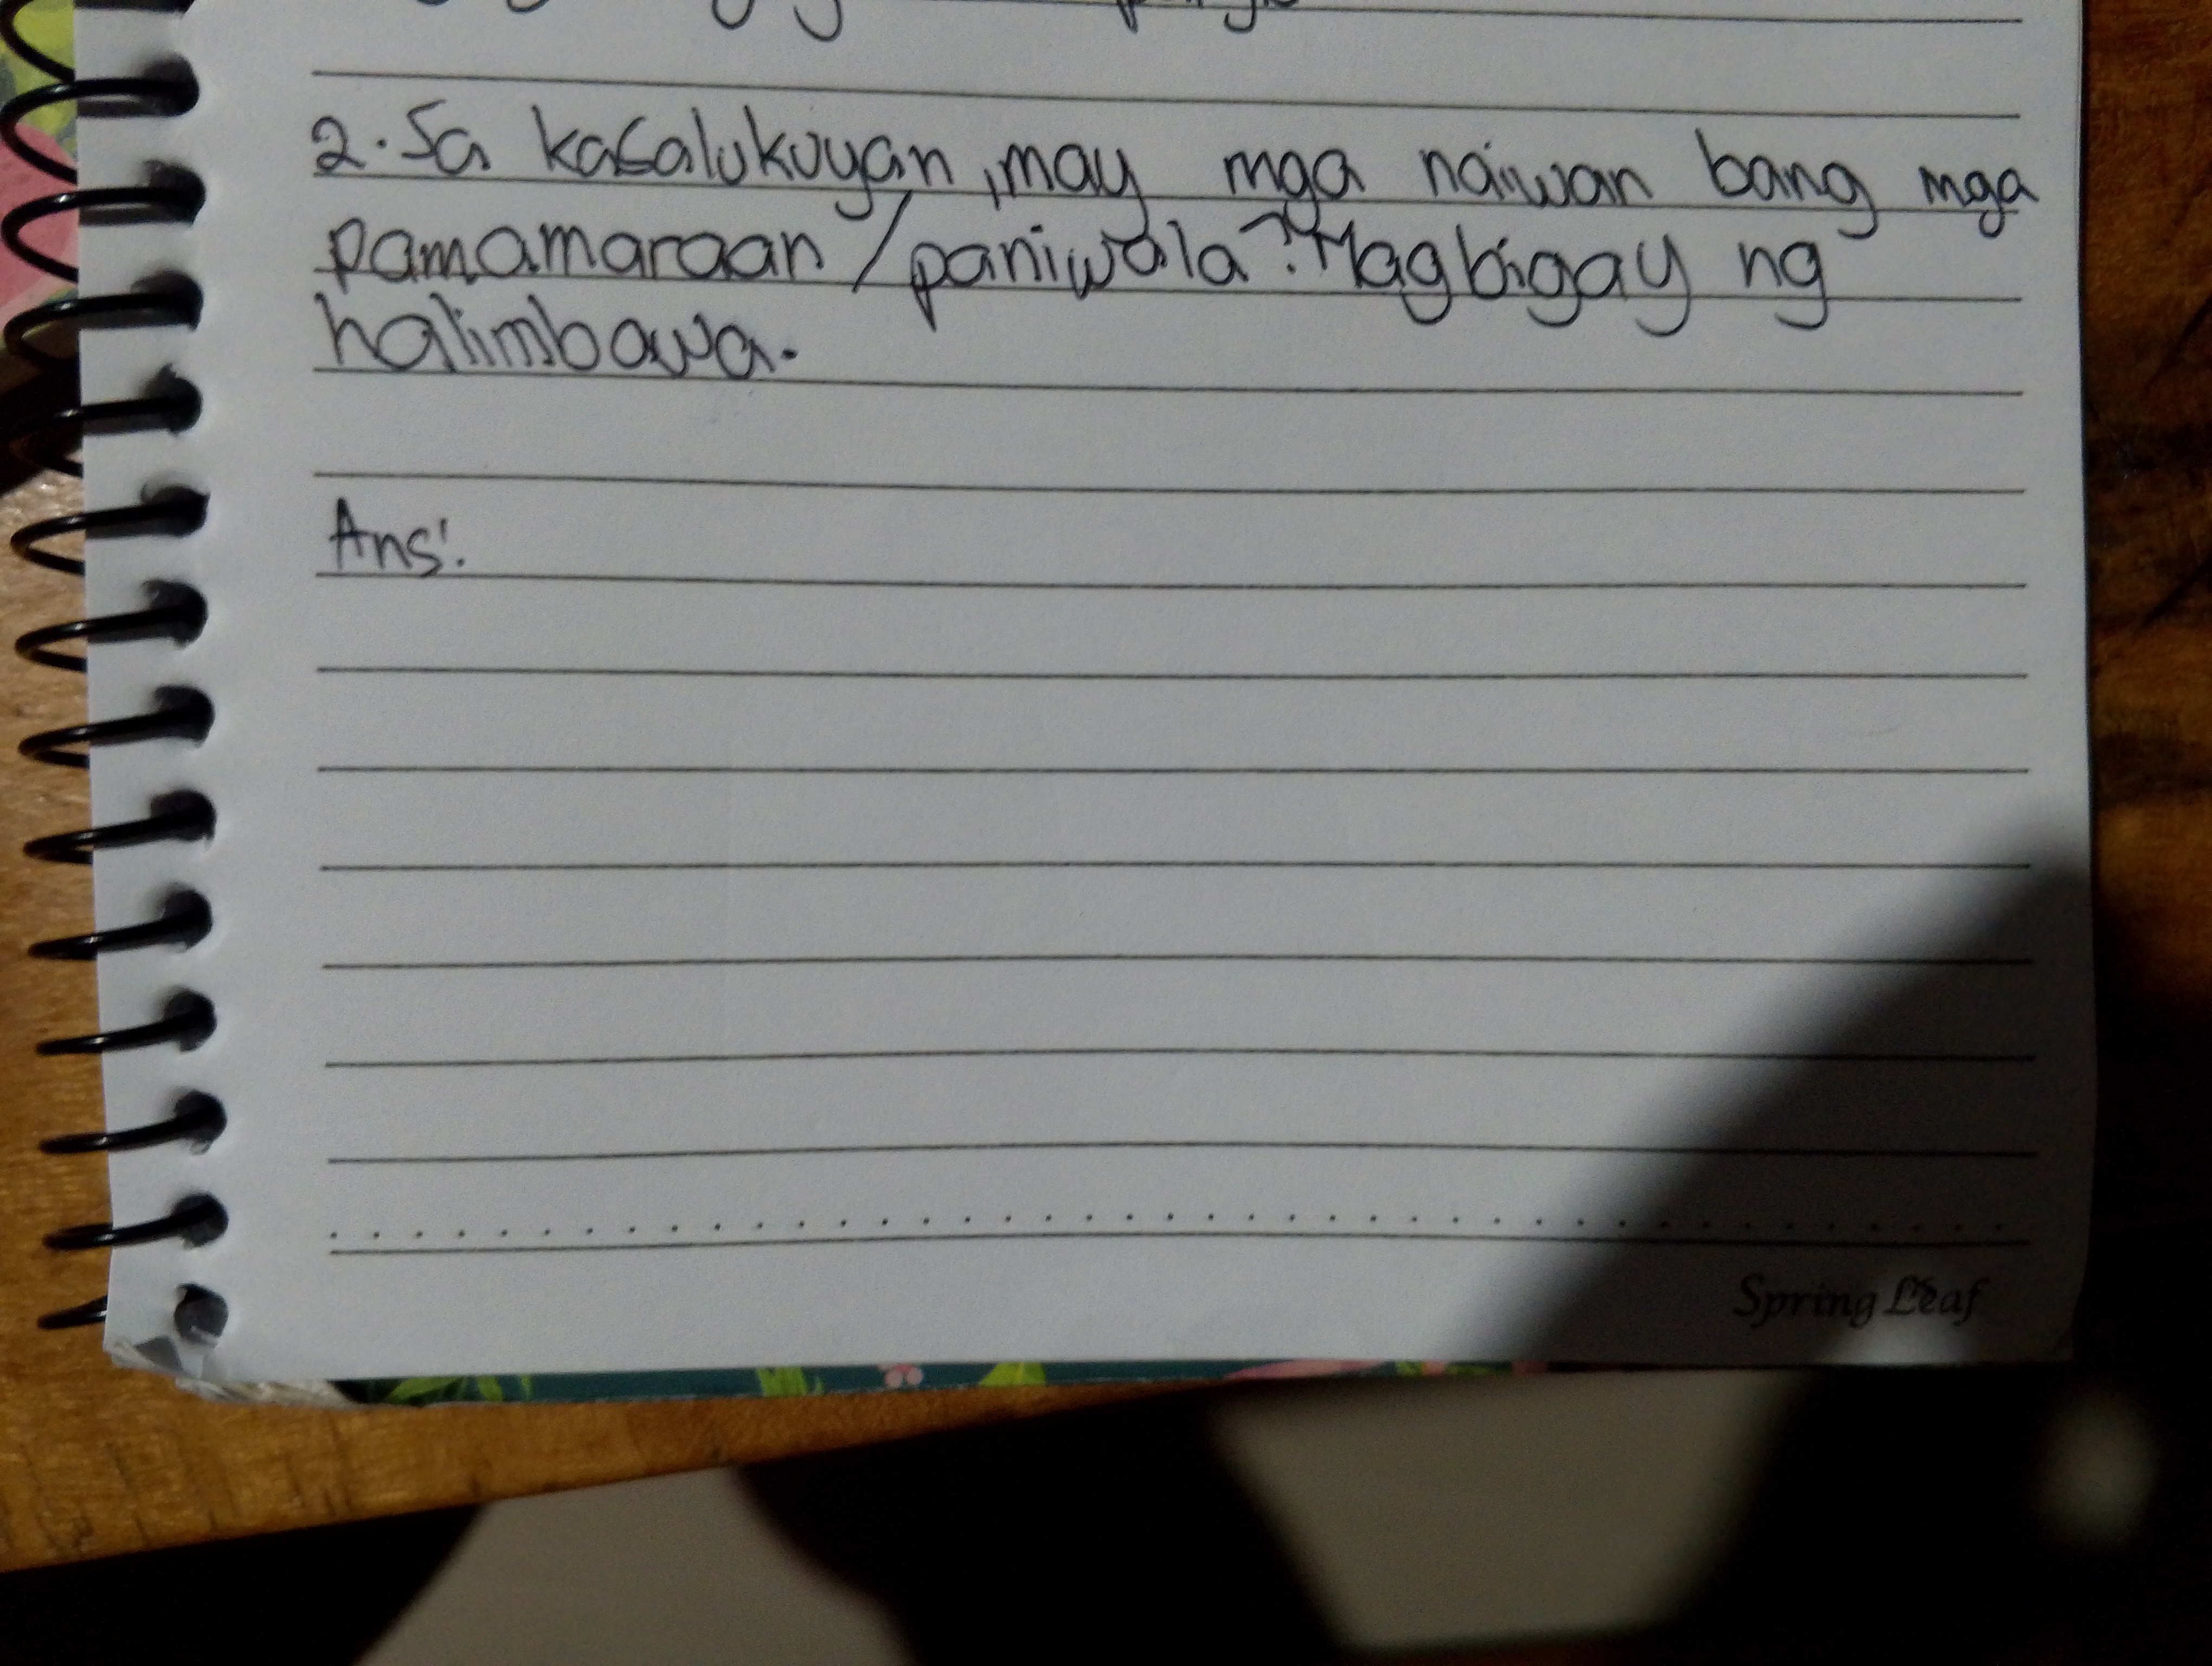 2. Sa kasalukuyan, may mga naiwan bang mga
pamamaraan / paniwala? Magbigay ng
halimbawa.
Ans:
Spring Leaf